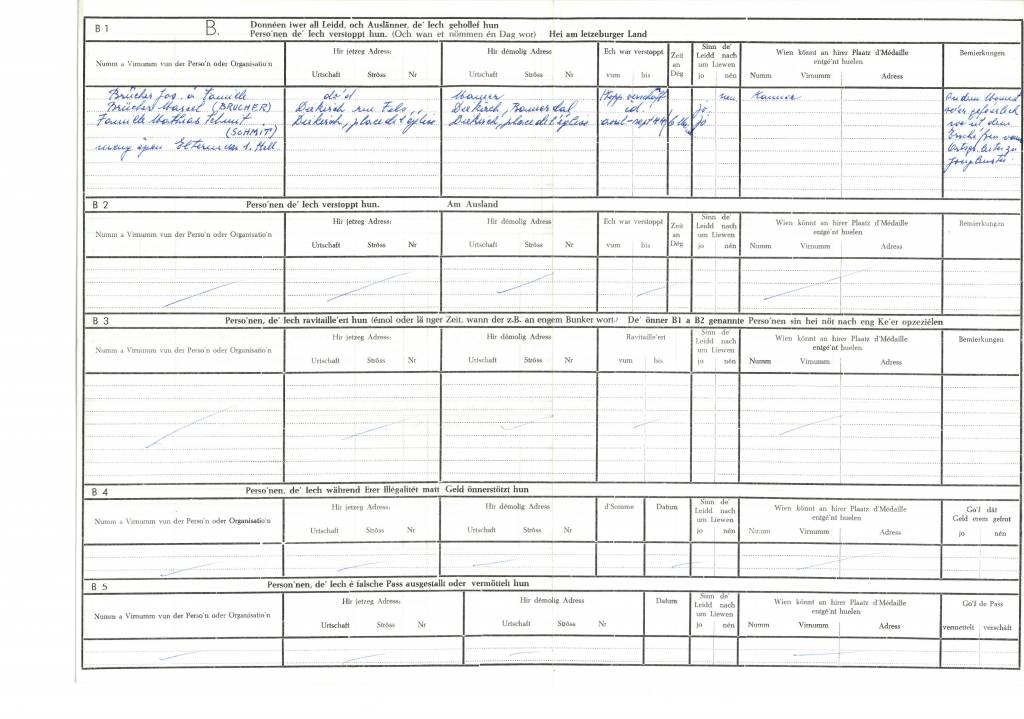 B 1 B. Donnéen iwer all Leidd, och Auslänner, de' Iech gehollef hun
Perso'nen de' Iech verstoppt hun. (Och wan et nömmen én Dag wor) Hei am letzeburger Land
Numm a Virnumm vun der Perso'n oder Organisatio'n
Hir jetzeg Adress:
Urtschaft Ströss Nr
Hir démolig Adress:
Urtschaft Ströss Nr
Ech war verstoppt
vum bis
Zeit
an
Dég
Sinn de'
Leidd nach
um Liewen
jo nén
Wien könnt an hirer Plaatz d'Médaille
entgé'nt huelen
Numm Virnumm Adress
Bemierkungen
Brücher Jos. a Famille do'd Mamer nen
Brücher Marcel (BRÜCHER) Diekirch rue Diekirch, id. jo
Famille Mathias Schmit Diekirch, place de l'église Diekirch, place de l'église aout-sept 44 jo
(SCHMIT)
B 2 Perso'nen de' Iech verstoppt hun. Am Ausland
Numm a Virnumm vun der Perso'n oder Organisatio'n
Hir jetzeg Adress:
Urtschaft Ströss Nr
Hir démolig Adress:
Urtschaft Ströss Nr
Ech war verstoppt
vum bis
Zeit
an
Dég
Sinn de'
Leidd nach
um Liewen
jo nén
Wien könnt an hirer Plaatz d'Médaille
entgé'nt huelen
Numm Virnumm Adress
Bemierkungen
B 3 Perso'nen, de' Iech ravitaille'ert hun (émol oder lä nger Zeit, wann der z.B. an engem Bunker wort.) De' önner B1 a B2 genannte Perso'nen sin hei nöt nach eng Ke'er opzeziélen
Numm a Virnumm vun der Perso'n oder Organisatio'n
Hir jetzeg Adress:
Urtschaft Ströss Nr
Hir démolig Adress
Urtschaft Ströss Nr
Ravitaille'ert
vum bis
Sinn de'
Leidd nach
um Liewen
jo nén
Wien könnt an hirer Plaatz d'Médaille
entgé'nt huelen
Numm Virnumm Adress
Bemierkungen
B 4 Perso'nen, de' Iech während Erer Illégalitét matt Geld önnerstötzt hun
Numm a Virnumm vun der Perso'n oder Organisatio'n
Hir jetzeg Adress:
Urtschaft Ströss Nr
Hir démolig Adress
Urtschaft Ströss Nr
d'Somme
Datum
Sinn de'
Leidd nach
um Liewen
jo nén
Wien könnt an hirer Plaatz d'Médaille
entgé'nt huelen
Numm Virnumm Adress
Go'f dät
Geld erem gefrot
jo nén
B 5 Person'nen, de' Iech é falsche Pass ausgestallt oder vermöttelt hun
Numm a Virnumm vun der Perso'n oder Organisatio'n
Hir jetzeg Adress:
Urtschaft Ströss Nr
Hir démolig Adress
Urtschaft Ströss Nr
Datum
Sinn de'
Leidd nach
um Liewen
jo nén
Wien könnt an hirer Plaatz d'Médaille
entgé'nt huelen
Numm Virnumm Adress
Go'f de Pass
vermettelt verschäft